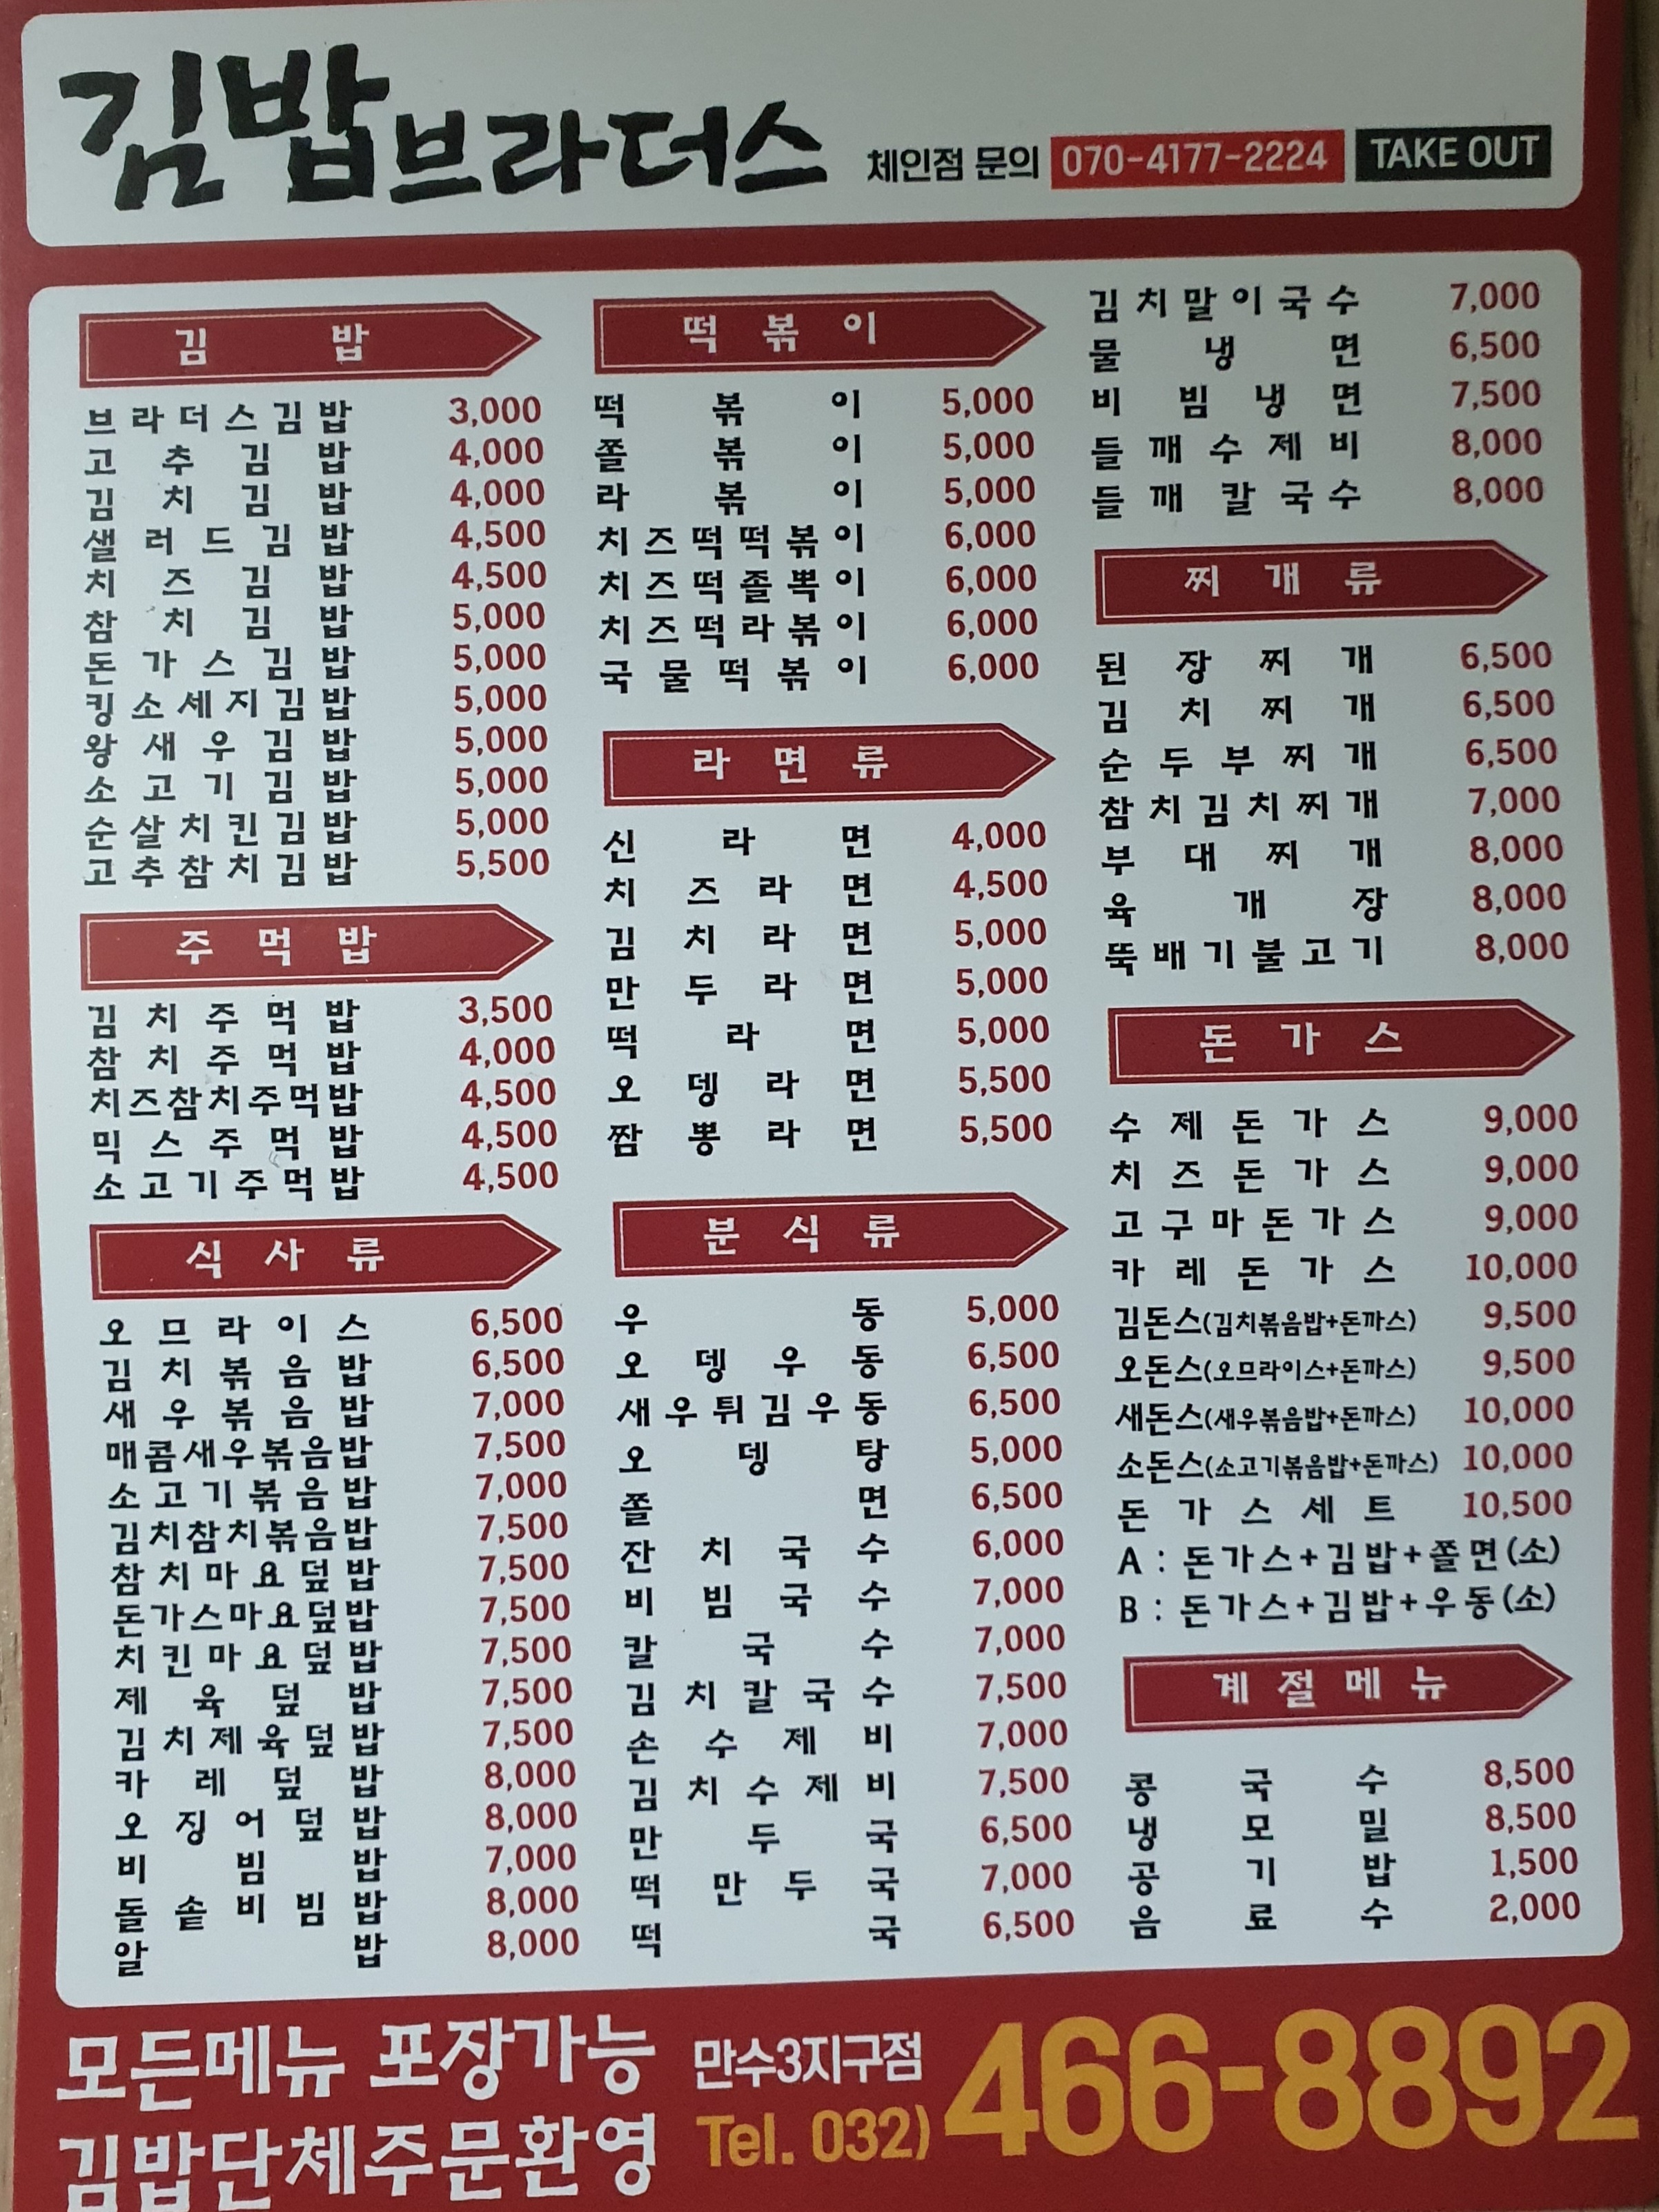 김밥브라더스 체인점 문의 070-4177-2224 TAKE OUT
김밥
브라더스김밥 3,000
고추김밥 4,000
김치김밥 4,000
샐러드김밥 4,500
치즈김밥 4,500
참치김밥 5,000
돈가스김밥 5,000
킹소세지김밥 5,000
왕새우김밥 5,000
소고기김밥 5,000
순살치킨김밥 5,000
고추참치김밥 5,500
주먹밥
김치주먹밥 3,500
참치주먹밥 4,000
치즈참치주먹밥 4,500
믹스주먹밥 4,500
소고기주먹밥 4,500
식사류
오므라이스 6,500
김치볶음밥 6,500
새우볶음밥 7,000
매콤새우볶음밥 7,500
소고기볶음밥 7,000
김치참치볶음밥 7,500
참치마요덮밥 7,500
돈가스마요덮밥 7,500
치킨마요덮밥 7,500
제육덮밥 7,500
김치제육덮밥 7,500
카레덮밥 8,000
오징어덮밥 8,000
비빔밥 7,000
돌솥비빔밥 8,000
알밥 8,000
떡볶이
떡볶이 5,000
쫄볶이 5,000
라볶이 5,000
치즈떡떡볶이 6,000
치즈떡졸뽁이 6,000
치즈떡라볶이 6,000
국물떡볶이 6,000
라면류
신라면 4,000
치즈라면 4,500
김치라면 5,000
만두라면 5,000
떡라면 5,000
오뎅라면 5,500
짬뽕라면 5,500
분식류
우동 5,000
오뎅우동 6,500
새우튀김우동 6,500
오뎅탕 5,000
쫄면 6,500
잔치국수 6,000
비빔국수 7,000
칼국수 7,000
김치칼국수 7,500
손수제비 7,000
김치수제비 7,500
만두국 6,500
떡만두국 7,000
떡국 6,500
김치말이국수 7,000
물냉면 6,500
비빔냉면 7,500
들깨수제비 8,000
들깨칼국수 8,000
찌개류
된장찌개 6,500
김치찌개 6,500
순두부찌개 6,500
참치김치찌개 7,000
부대찌개 8,000
육개장 8,000
뚝배기불고기 8,000
돈가스
수제돈가스 9,000
치즈돈가스 9,000
고구마돈가스 9,000
카레돈가스 10,000
김돈스(김치볶음밥+돈까스) 9,500
오돈스(오므라이스+돈까스) 9,500
새돈스(새우볶음밥+돈까스) 10,000
소돈스(소고기볶음밥+돈까스) 10,000
돈가스세트 10,500
A : 돈가스+김밥+쫄면(소)
B : 돈가스+김밥+우동(소)
계절메뉴
콩국수 8,500
냉모밀 8,500
공기밥 1,500
음료수 2,000
모든메뉴 포장가능
김밥단체주문환영
만수3지구점
Tel. 032) 466-8892